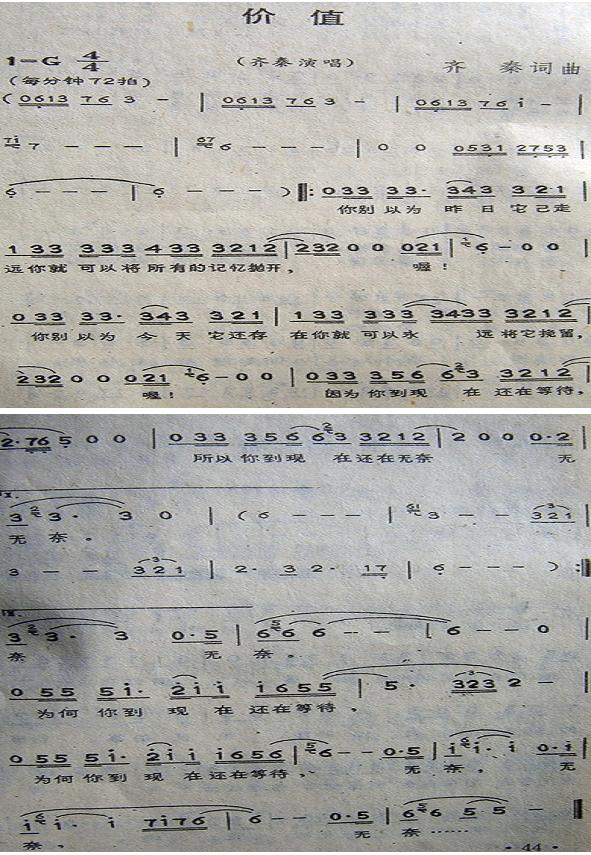 价 值
1=G 4/4
(齐秦演唱)
齐 秦词曲
(每分钟72拍)
( 0613 76 3 - | 0613 76 3 - | 0613 76 i - |
7i 7 - - - | 67 6 - - - | 0 0 0531 2753 |
6 - - - | 6 - - - ) ‖: 033 33· 343 32·1 |
你别 以为 昨 日 它已走
1 33 333 433 3212 | 232 0 0 021 | 1 6 - 0 0 |
远你就 可以将 所有的记忆抛开, 喔!
033 33· 343 321 | 133 333 3433 3212 |
你别 以为 今 天 它还存 在你就 可以永 远将它挽留,
232 0 0 021 | 1 6 - 0 0 | 033 356 6 2 3 3212 |
喔! 因为 你到现 在 还在等待,
2·76 5 0 0 | 033 356 6 2 3 3212 | 2 0 0 0·2 |
所以 你到现 在还在无奈 无
3 2 3· 3 0 | ( 6 - - - | 61 3 - - 321 |
无 奈。
3 - - 321 | 2· 3 2· 17 | 6 - - - ) :‖
3 2 3· 3 0·5 | 6 5 6 6 - - | 6 - - 0 |
奈 无 奈。
0 55 5i· 2i i i655 | 5· 323 2 - |
为何 你到 现 在 还在等待,
0 55 5i· 2i i i656 | 5 6 - - 0·5 | i 6 i· i 0·i |
为何 你到 现 在还在等待, 无 奈, 无
i 6 i· i 7i76 | 6 - - 0·5 | 6 5 6 5·5 - ‖
奈, 无 奈……
· 44 ·